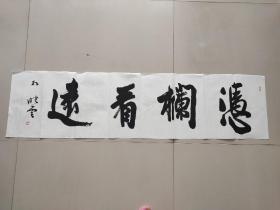 憑欄看遠